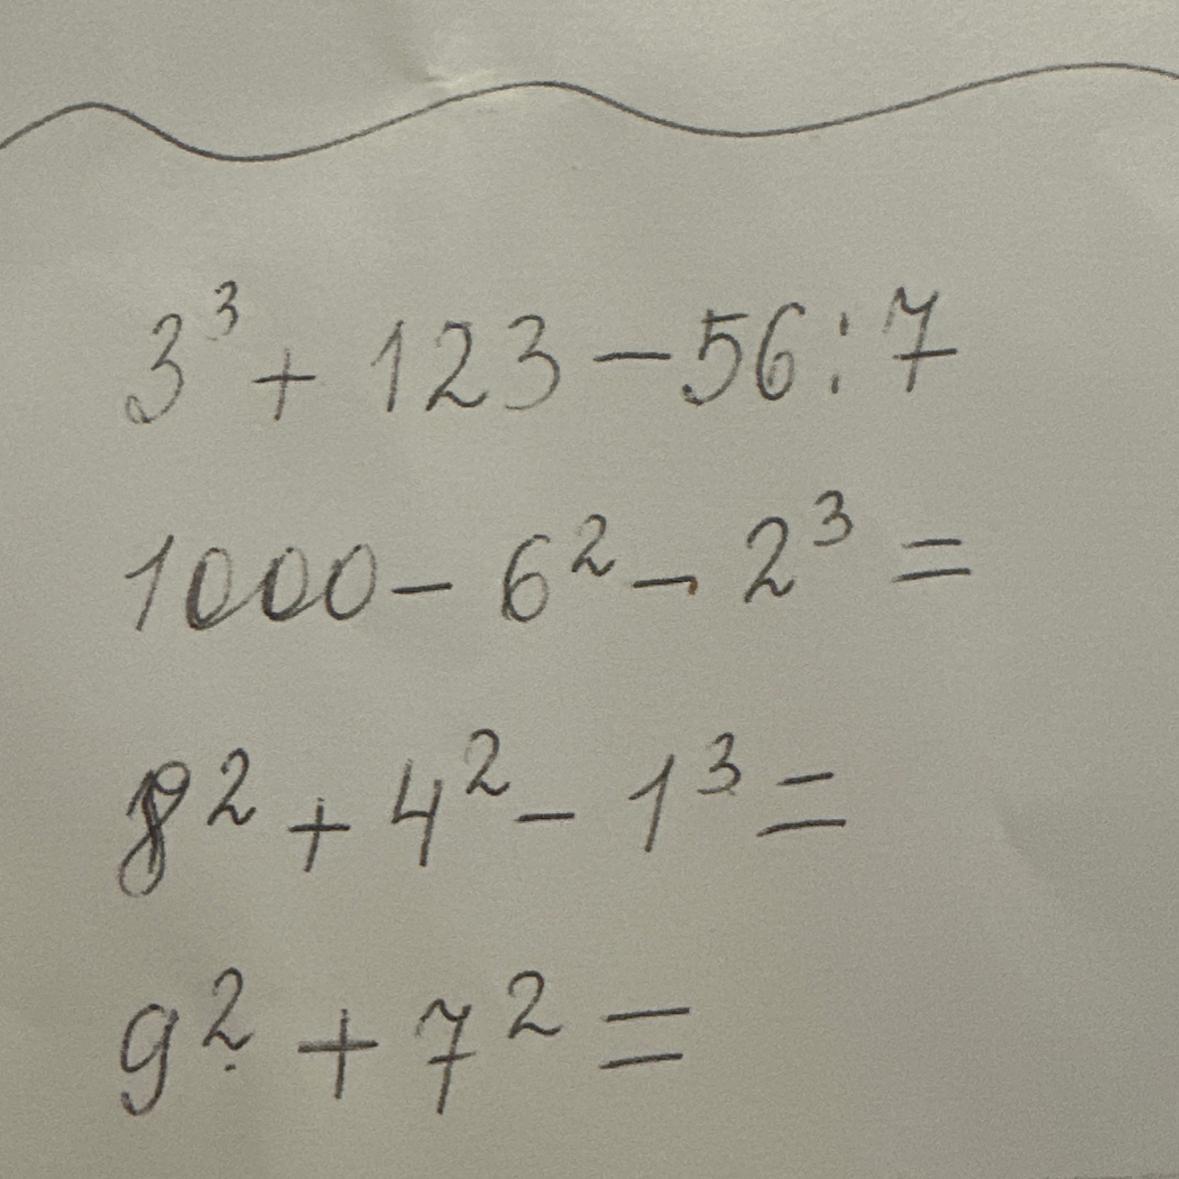 3³ + 123 - 56 : 7
1000 - 6² - 2³ =
8² + 4² - 1³ =
9² + 7² =